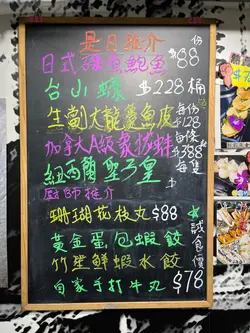 是日推介
日式磯煮鮑魚 $88 份
台山蠔 $228 桶
生劏大龍躉魚皮 每份 $128
加拿大A級象拔蚌 每條 $388
紐西蘭聖子皇 每隻
廚師推介
珊瑚花枝丸 $88
黃金蛋包蝦餃
竹笙鮮蝦水餃
自家手打牛丸
誠食價 $78